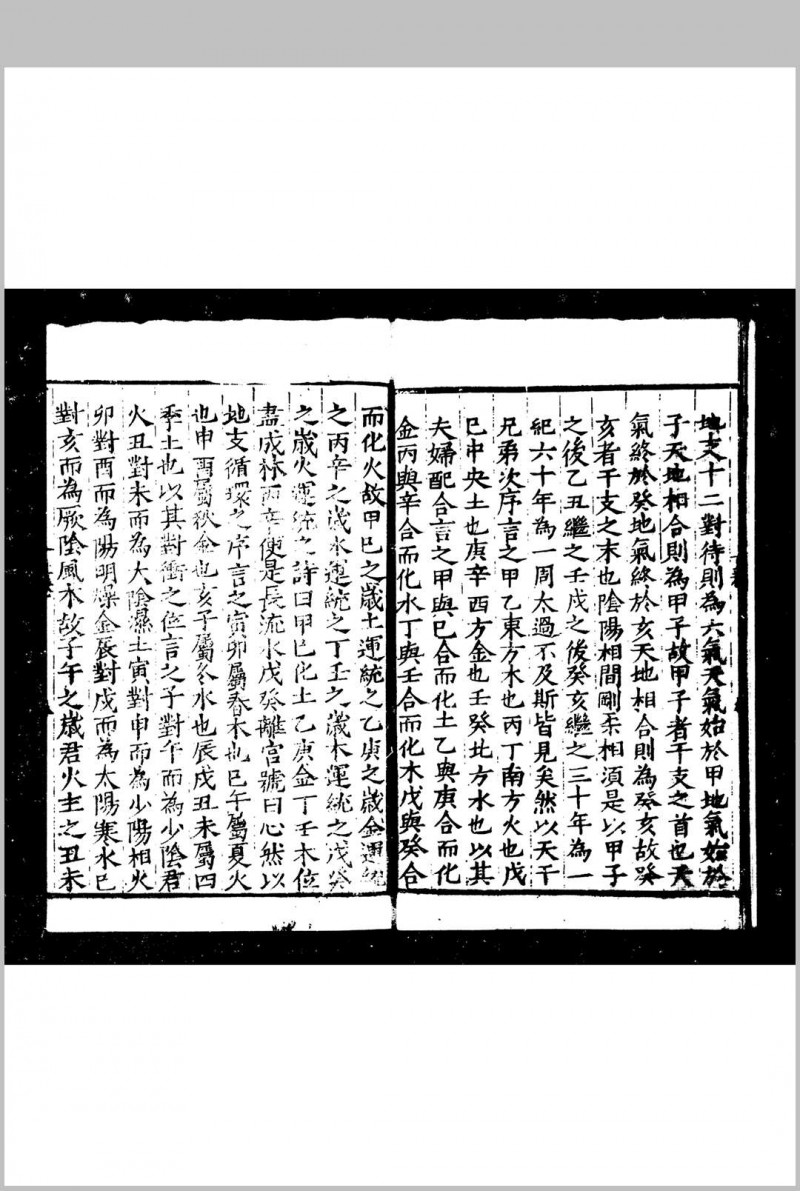 地支十二對待則為六氣天氣始於甲地氣始於
子天地相合則為甲子故甲子者干支之首也天
氣終於癸地氣終於亥天地相合則為癸亥故癸
亥者干支之末也陰陽相間剛柔相須是以甲子
之後乙丑繼之壬戌之後癸亥繼之三十年為一
紀六十年為一周太過不及斯皆見矣然以天干
兄弟次序言之甲乙東方木也丙丁南方火也戊
巳中央土也庚辛西方金也壬癸北方水也以其
夫婦配合言之甲與巳合而化土乙與庚合而化
金丙與辛合而化水丁與壬合而化木戊與癸合
而化火故甲巳之歲土運統之乙庚之歲金運統
之丙辛之歲水運統之丁壬之歲木運統之戊癸
之歲火運統之詩曰甲巳化土乙庚金丁壬木位
盡成林丙辛便是長流水戊癸離宮號曰心然以
地支循環之序言之寅卯屬春木也巳午屬夏火
也申酉屬秋金也亥子屬冬水也辰戌丑未屬四
季土也以其對衝之位言之子對午而為少陰君
火丑對未而為太陰濕土寅對申而為少陽相火
卯對酉而為陽明燥金辰對戌而為太陽寒水巳
對亥而為厥陰風木故子午之歲君火主之丑未